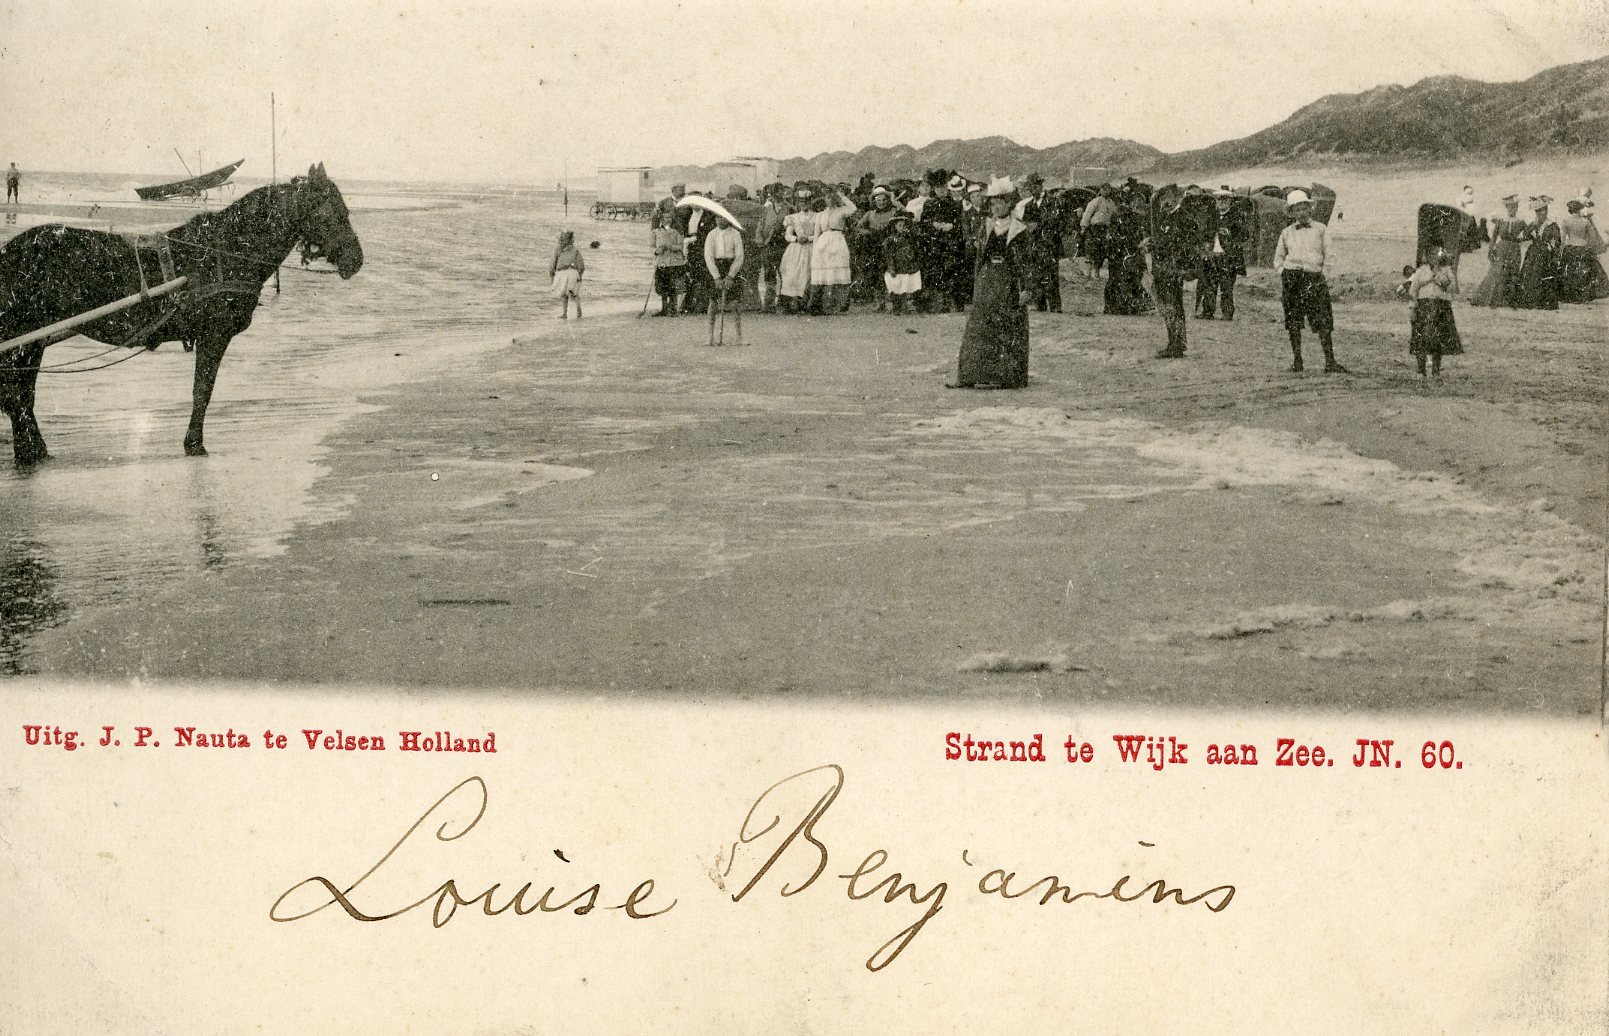 Uitg. J. P. Nauta te Velsen Holland
Strand te Wijk aan Zee. JN. 60.
Louise Benjamins